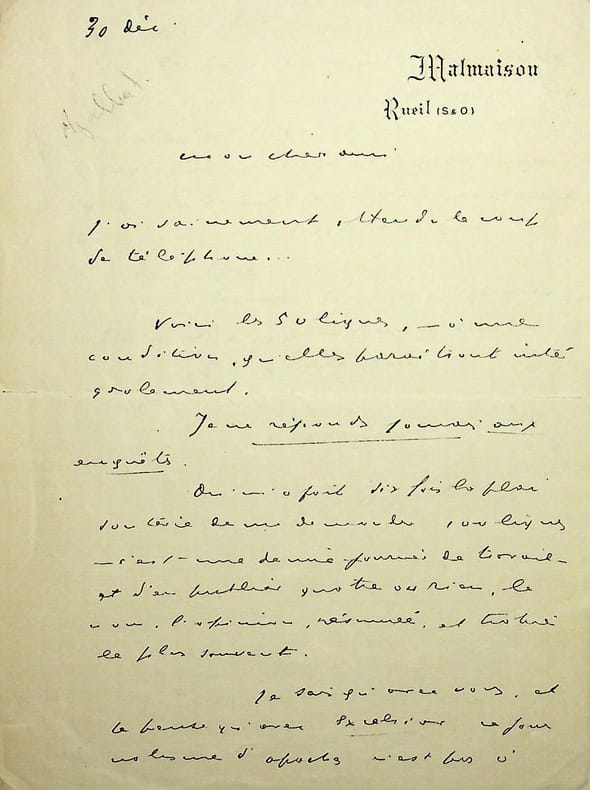 30 déc.
Malmaison
Rueil (S&O)
mon cher ami
J'ai vainement attendu le coup
de téléphone...
Voici les 50 lignes, — à une
condition, qu'elles paraitront inté
gralement.
Je ne réponds jamais aux
enquêtes.
On m'a fait dix fois la plai
santerie de me demander 100 lignes
— c'est une demie journée de travail —
et d'en publier quatre ou rien, le
nom, l'opinion, résumée, et trahie
le plus souvent.
Je sais qu'avec vous, et
je pense qu'avec Excelsior ce jour
nalisme d' n'est pas à